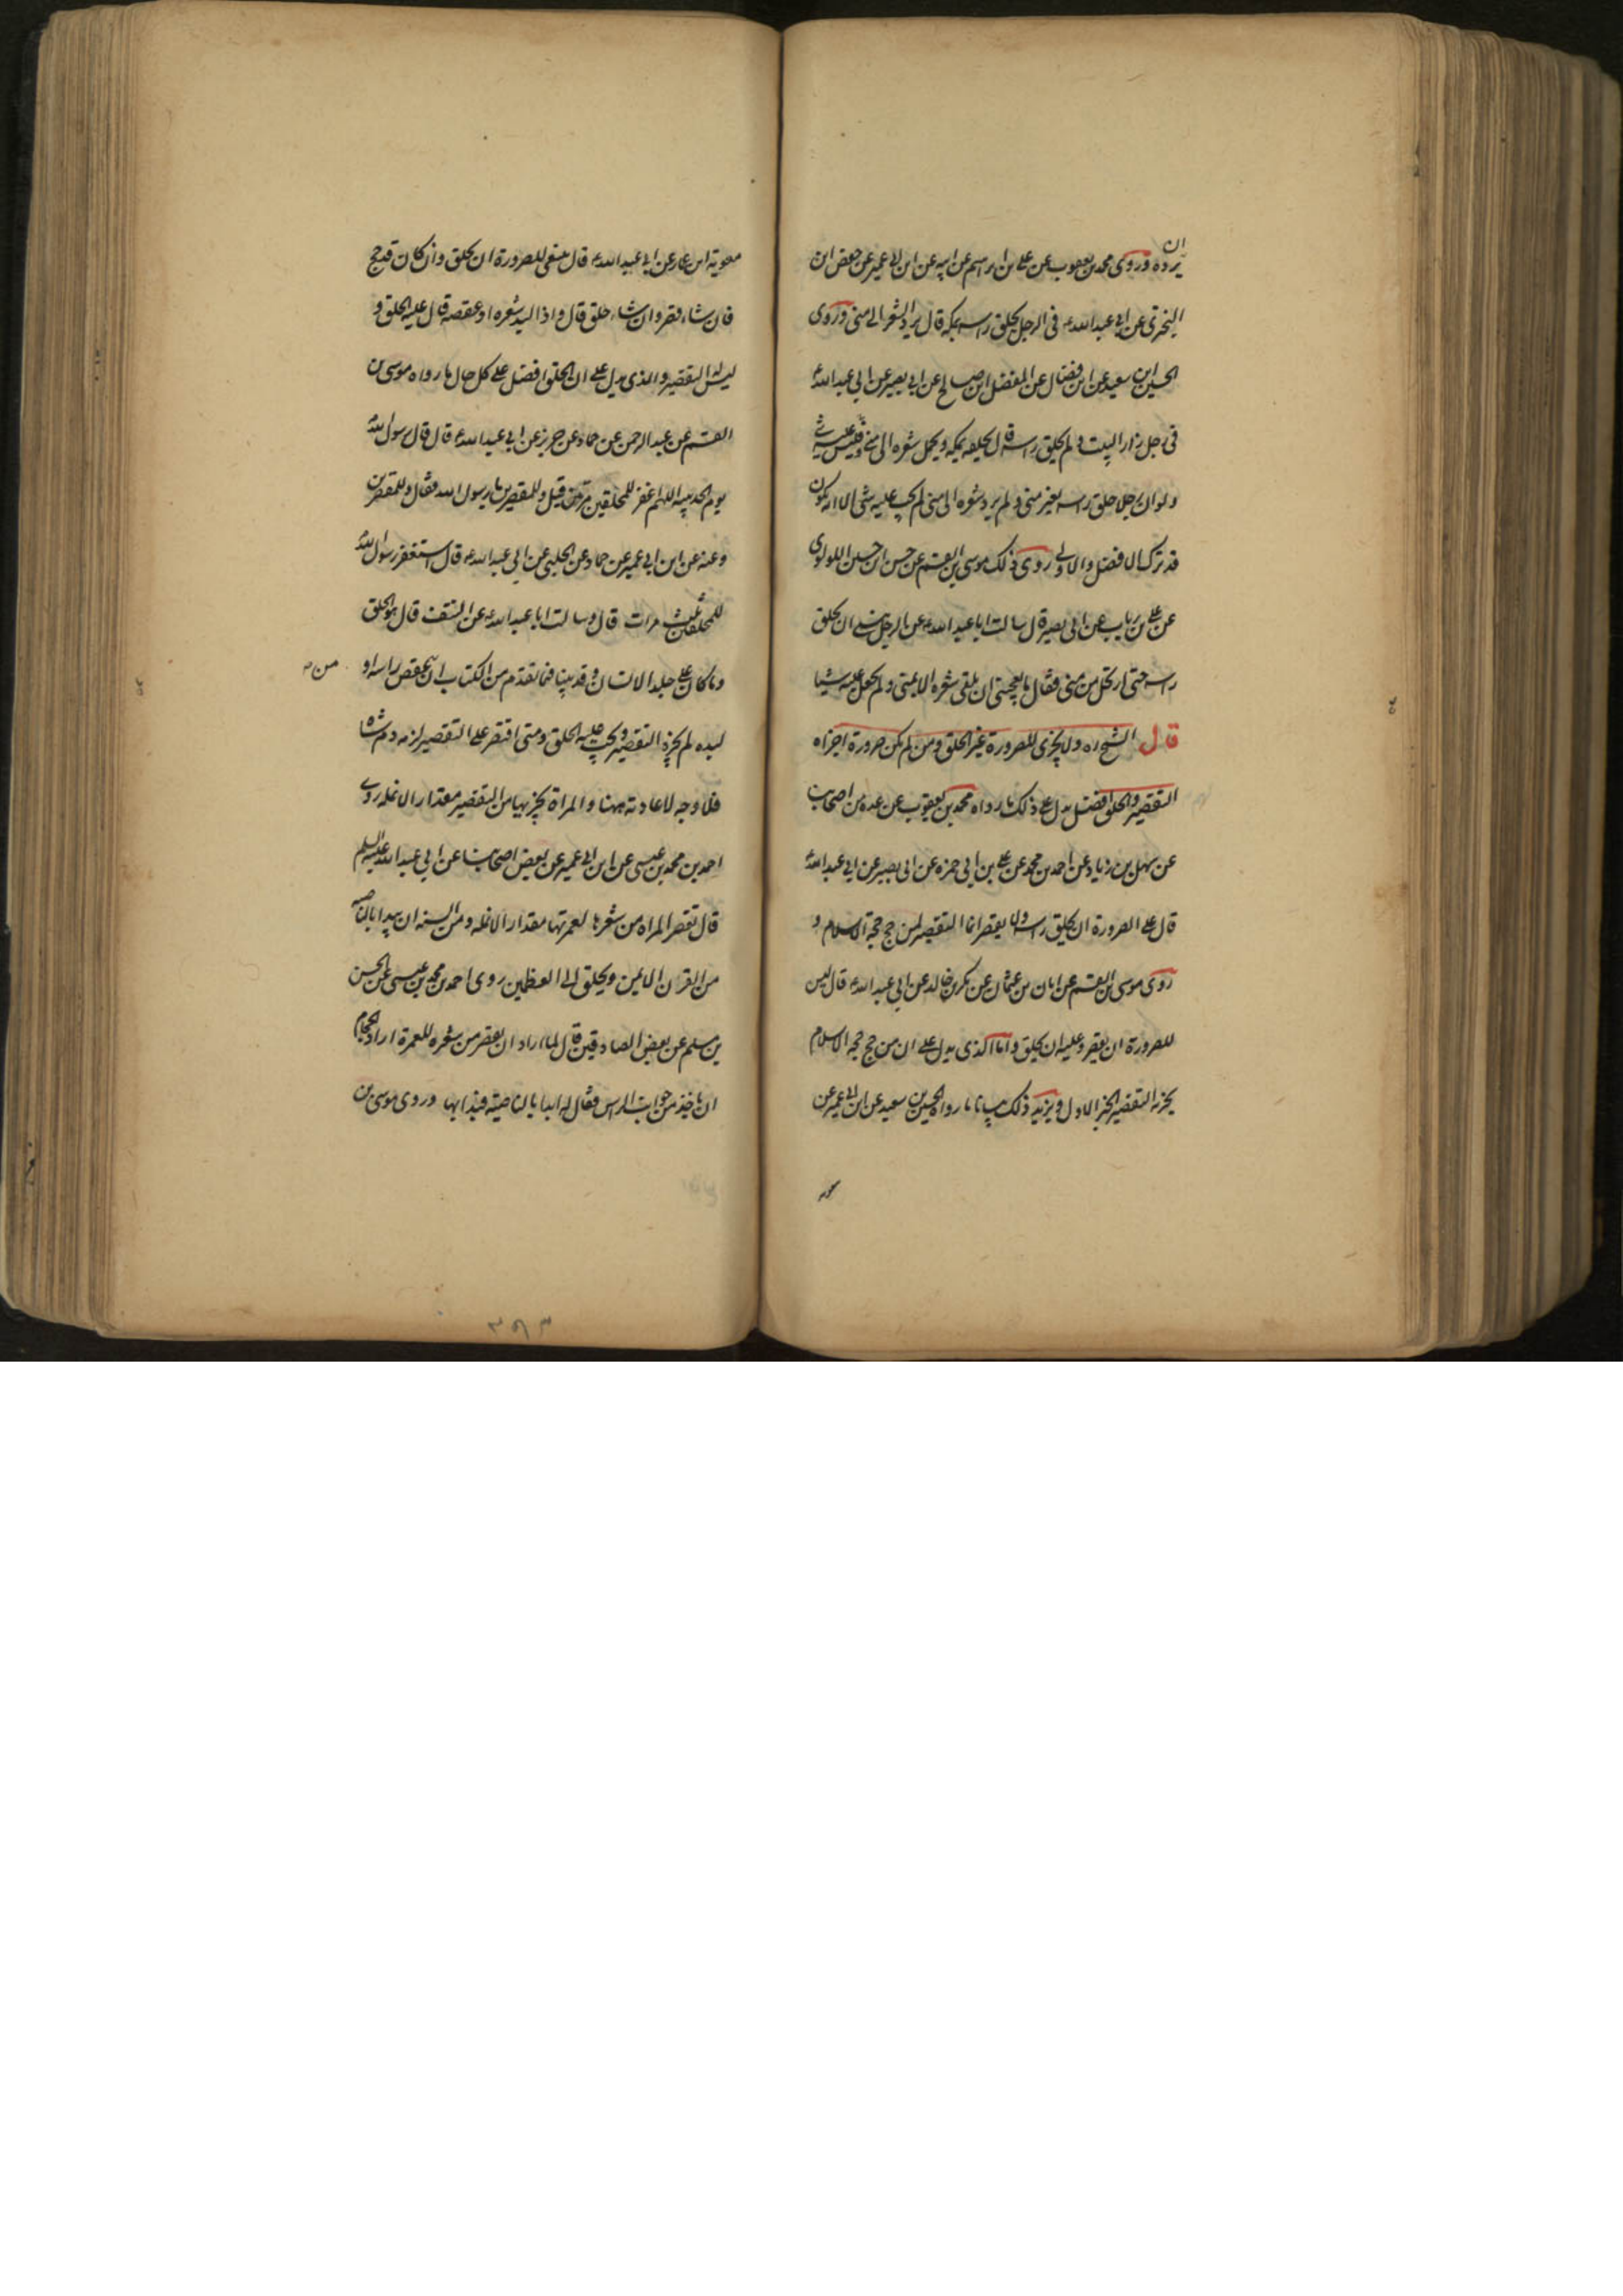 ان
يرده وروى محمد بن يعقوب عن على بن ابراهيم عن ابيه عن ابن ابى عمير عن حفص ابن
البخترى عن ابى عبد الله ع فى الرجل يحلق راسه بمكة قال يرد الشعر الى منى وروى
الحسين ابن سعيد عن ابن فضال عن المفضل ابن صالح عن ابى بصير عن ابى عبد الله ع
فى رجل زار البيت ولم يحلق راسه قال يحلقه بمكة ويحمل شعره الى منى وليس عليه شئ
ولو ان رجلا حلق راسه بغير منى ولم يرد شعره الى منى لم يجب عليه شئ الا انه يكون
قد ترك الافضل والاولى روى ذلك موسى بن القسم عن حسن ابن حسين اللولوى
عن على بن رياب عن ابى بصير قال سالت ابا عبد الله ع عن الرجل ينسى ان يحلق
راسه حتى ارتحل من منى فقال ما يعجبنى ان يلقى شعره الا بمنى ولم يجعل عليه شيئا
قال الشيخ ره ولا يجزى للصرورة غير الحلق ومن لم يكن صرورة اجزاه
التقصير والحلق افضل يدل على ذلك ما رواه محمد بن يعقوب عن عدة من اصحابنا
عن سهل بن زياد عن احمد بن محمد عن على بن ابى حمزه عن ابى بصير عن ابى عبد الله ع
قال على الصرورة ان يحلق راسه ولا يقصر انما التقصير لمن حج حجة الاسلام و
روى موسى بن القسم عن ابان بن عثمان عن بكر بن خالد عن ابى عبد الله ع قال ليس
للصرورة ان يقصر وعليه ان يحلق واما الذى يدل على ان من حج حجة الاسلام
يجزيه التقصير الخبر الاول ويزيد ذلك بيانا ما رواه الحسين بن سعيد عن ابن ابى عمير عن
معويه
معوية ابن عمار عن ابى عبد الله ع قال ينبغى للصرورة ان يحلق وان كان قد حج
فان شاء قصر وان شاء حلق قال واذا لبد شعره او عقصه قال عليه الحلق و
ليس له التقصير والذى يدل على ان الحلق افضل على كل حال ما رواه موسى بن
القسم عن عبد الرحمن عن حماد عن حريز عن ابى عبد الله ع قال قال رسول الله
يوم الحديبيه اللهم اغفر للمحلقين مرتين قيل وللمقصرين يا رسول الله فقال وللمقصرين
وعنه عن ابن ابى عمير عن حماد عن الحلبى عن ابى عبد الله ع قال استغفر رسول الله
للمحلقين ثلث مرات قال وسالت ابا عبد الله ع عن التفث قال هو الحلق
وما كان على جلد الانسان وقد بينا فيما تقدم من الكتاب ان عقص راسه او
من
لبده لم يجزه التقصير ويجب عليه الحلق ومتى اقتصر على التقصير لزمه دم شاة
فلا وجه لاعادته ههنا والمراة يجزيها من التقصير مقدار الانملة روى
احمد بن محمد بن عيسى عن ابن ابى عمير عن بعض اصحابنا عن ابى عبد الله عليه السلم
قال تقصر المراه من شعرها لعمرتها مقدار الانمله ومن السنه ان يبدا بالناصيه
من القرن الايمن ويحلق الى العظمين روى احمد بن محمد بن عيسى عن الحسن
بن مسلم عن بعض الصادقين قال لما اراد ان يقصر من شعره للعمرة اراد الحجام
ان ياخذ من جوانب الراس فقال له ابدا بالناصية فبدا بها وروى موسى بن